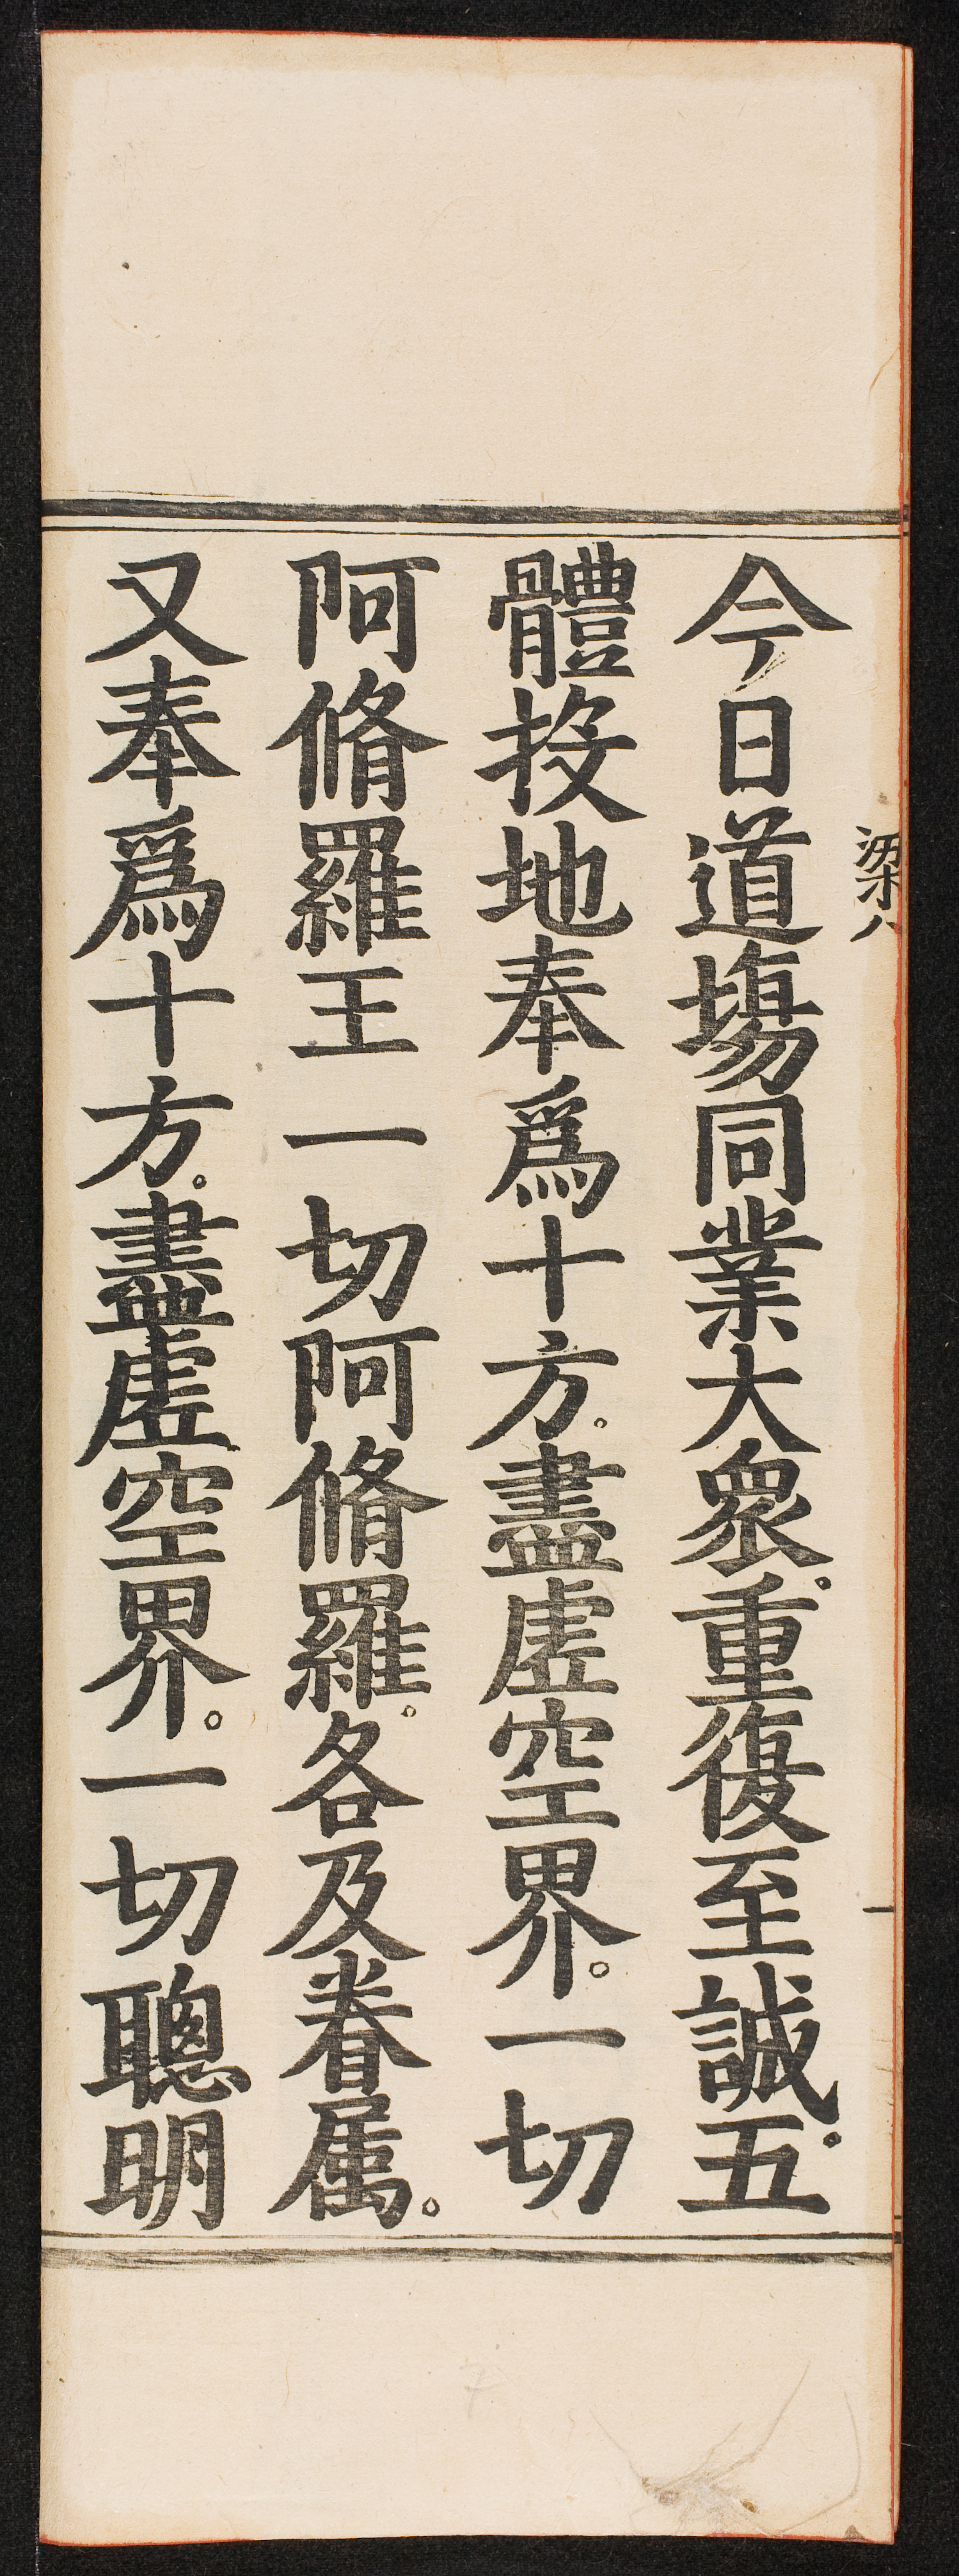 今日道場同業大衆。重復至誠。五
體投地奉爲十方。盡虛空界。一切
阿脩羅王一切阿脩羅。各及眷属。
又奉爲十方。盡虛空界。一切聰明
梁八
一